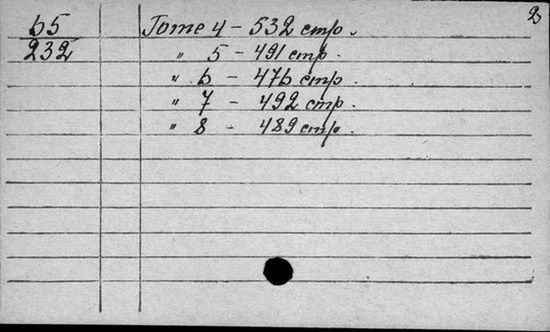 2
65 Tome 4 - 532 стр.
232 " 5 - 491 стр.
" 6 - 476 стр.
" 7 - 492 стр.
" 8 - 489 стр.